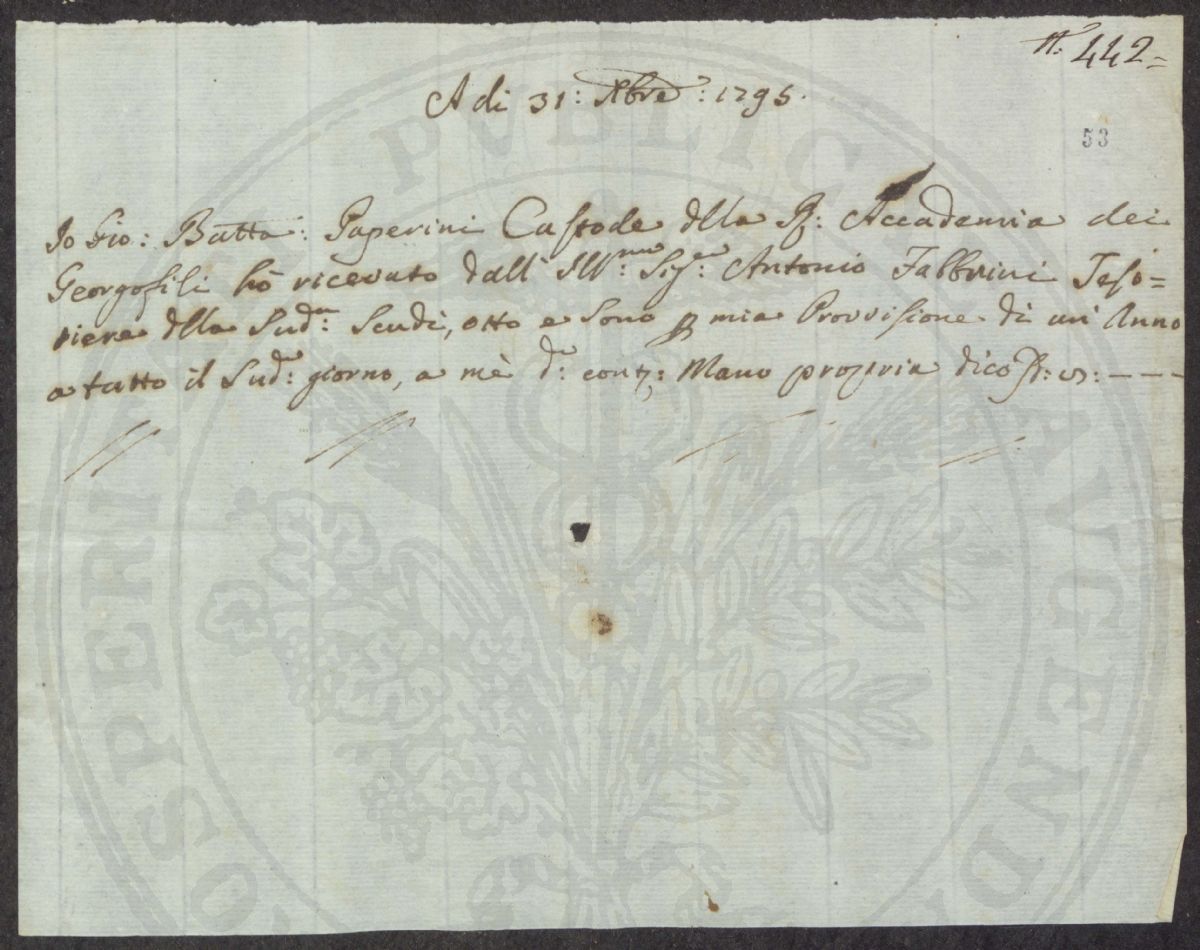 N: 442=
A di 31: Xbre: 1795.
53
Io Gio: Batta: Paperini Custode dlla R: Accademia dei
Georgofili hò ricevuto dall' Illmo: Sigre: Antonio Fabbrini Teso=
riere dlla Sudª: Scudi, otto e Sono p mia Provvisione di un' Anno
a tutto il Sudº: giorno, a mè dº: contj: Mano propria dico
PUBLICAE
PROSPERITATI
AUGENDAE